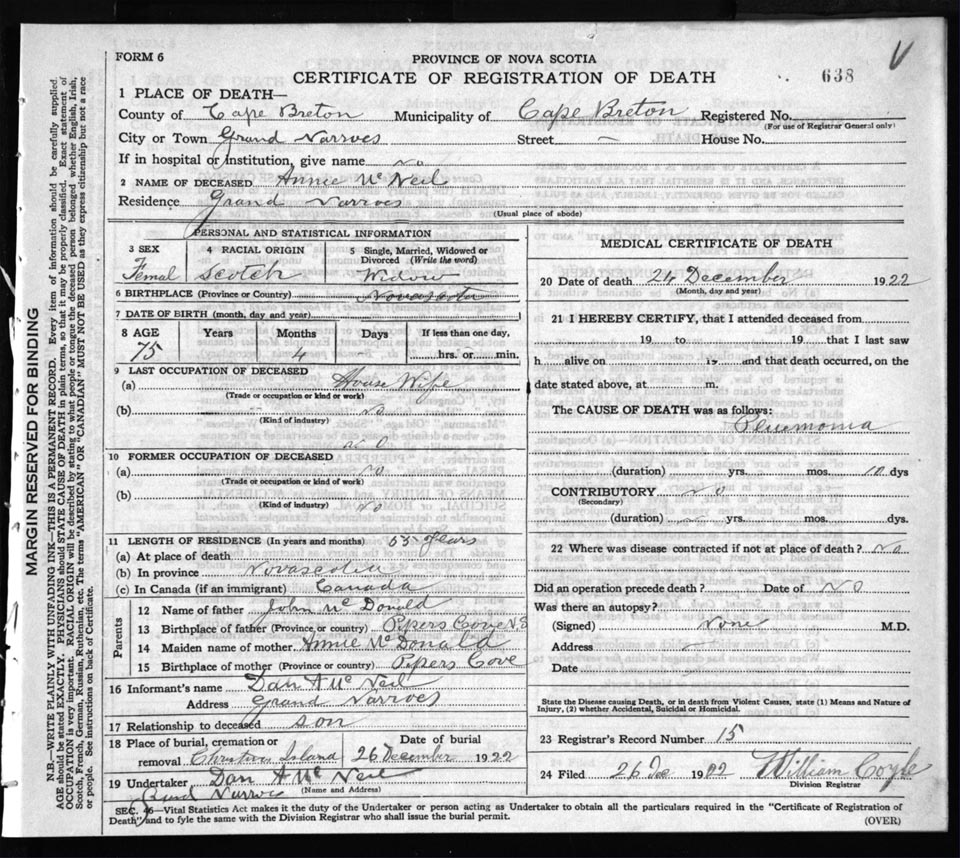 FORM 6
PROVINCE OF NOVA SCOTIA
CERTIFICATE OF REGISTRATION OF DEATH
638
1 PLACE OF DEATH—
County of Cape Breton Municipality of Cape Breton Registered No.
(For use of Registrar General only)
City or Town Grand Narrows Street — House No.
If in hospital or institution, give name no
2 NAME OF DECEASED Annie Mc Neil
Residence Grand Narrows
(Usual place of abode)
PERSONAL AND STATISTICAL INFORMATION
3 SEX
Femal
4 RACIAL ORIGIN
Scotch
5 Single, Married, Widowed or Divorced (Write the word)
Widow
6 BIRTHPLACE (Province or Country) Novascotia
7 DATE OF BIRTH (month, day and year)
8 AGE Years Months Days If less than one day,
75 4 hrs. or min.
9 LAST OCCUPATION OF DECEASED
(a) House Wife
(Trade or occupation or kind or work)
(b) no
(Kind of industry)
no
10 FORMER OCCUPATION OF DECEASED
(a) no
(Trade or occupation or kind or work)
(b)
(Kind of industry) no
11 LENGTH OF RESIDENCE (In years and months) 55 years
(a) At place of death
(b) In province Novascotia
(c) In Canada (if an immigrant) Canada
Parents
12 Name of father John Mc Donald
13 Birthplace of father (Province or country) Pipers Cove N S
14 Maiden name of mother Annie Mc Donald
15 Birthplace of mother (Province or country) Pipers Cove
16 Informant's name Dan A Mc Neil
Address Grand Narrows
17 Relationship to deceased son
18 Place of burial, cremation or removal Date of burial
Christmas Island 26 December 1922
19 Undertaker Dan A Mc Neil
(Name and Address)
Grand Narrows
MEDICAL CERTIFICATE OF DEATH
20 Date of death 24 December 1922
(Month, day and year)
21 I HEREBY CERTIFY, that I attended deceased from
19 to 19 that I last saw
h alive on 19 and that death occurred, on the
date stated above, at m.
The CAUSE OF DEATH was as follows:
Pluemonia
(duration) yrs. mos. 10 dys
CONTRIBUTORY no
(Secondary)
(duration) yrs. mos. dys.
22 Where was disease contracted if not at place of death? no
Did an operation precede death? Date of NO
Was there an autopsy?
(Signed) None M.D.
Address —
Date
State the Disease causing Death, or in death from Violent Causes, state (1) Means and Nature of Injury, (2) whether Accidental, Suicidal or Homicidal.
23 Registrar's Record Number 15
24 Filed 26 Dec 1922 William Coyle
Division Registrar
SEC. 46 Vital Statistics Act makes it the duty of the Undertaker or person acting as Undertaker to obtain all the particulars required in the "Certificate of Registration of
Death" and to fyle the same with the Division Registrar who shall issue the burial permit.
(OVER)
MARGIN RESERVED FOR BINDING
N.B.—WRITE PLAINLY WITH UNFADING INK—THIS IS A PERMANENT RECORD. Every item of information should be carefully supplied.
AGE should be stated EXACTLY. PHYSICIANS should STATE CAUSE OF DEATH in plain terms, so that it may be properly classified. Exact statement of
OCCUPATION is very important. RACIAL ORIGIN will be described by stating to what people or tongue the deceased person belonged, whether English, Irish,
Scotch, French, German, Russian, Ruthenian, etc. The terms "AMERICAN" OR "CANADIAN" MUST NOT BE USED as they express citizenship but not a race
or people. See instructions on back of Certificate.